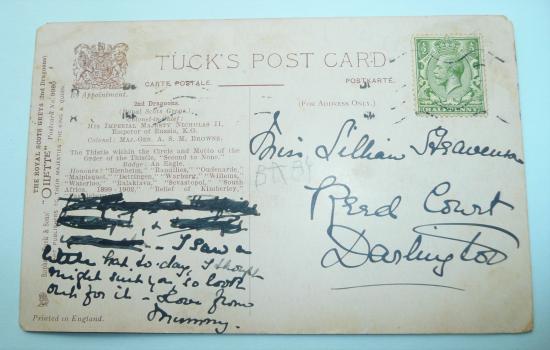 TUCK'S POST CARD
CARTE POSTALE
POSTKARTE
Appointment.
(FOR ADDRESS ONLY.)
2nd Dragoons.
(Royal Scots Greys.)
Colonel-in-Chief:
HIS IMPERIAL MAJESTY NICHOLAS II,
Emperor of Russia, K.G.
Colonel: MAJ.-GEN. A. S. M. BROWNE.
The Thistle within the Circle and Motto of the
Order of the Thistle, "Second to None."
Badge: An Eagle.
Honours: "Blenheim," "Ramillies," "Oudenarde,"
"Malplaquet," "Dettingen," "Warburg," "Willems,"
"Waterloo," "Balaklava," "Sevastopol," "South
Africa, 1899-1902," "Relief of Kimberley,"
I saw a
little hat to-day, I thought
might suit you, so look
out for it - Love from
Mummy.
Printed in England.
THE ROYAL SCOTS GREYS (2nd Dragoons)
"OILETTE"
HALFPENNY
Miss Lillian
Reed Court
Darlington